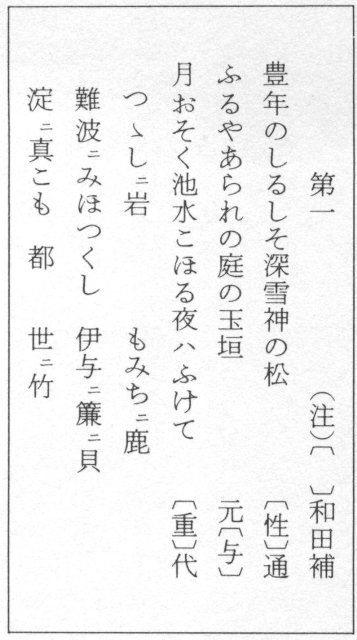 第一　（注）〔　〕和田補
豊年のしるしそ深雪神の松　〔性〕通
ふるやあられの庭の玉垣　元〔与〕
月おそく池水こほる夜ハふけて　〔重〕代
つゝしニ岩　もみちニ鹿
難波ニみほつくし　伊与ニ簾ニ貝
淀ニ真こも　都　世ニ竹